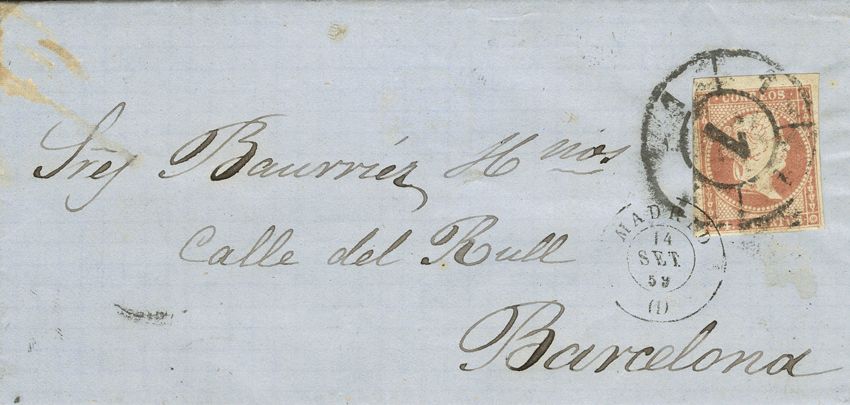 Sres Baurriéz Hnos
Calle del Rull
Barcelona
CORREOS
1
MADRID
14
SET
59
(1)